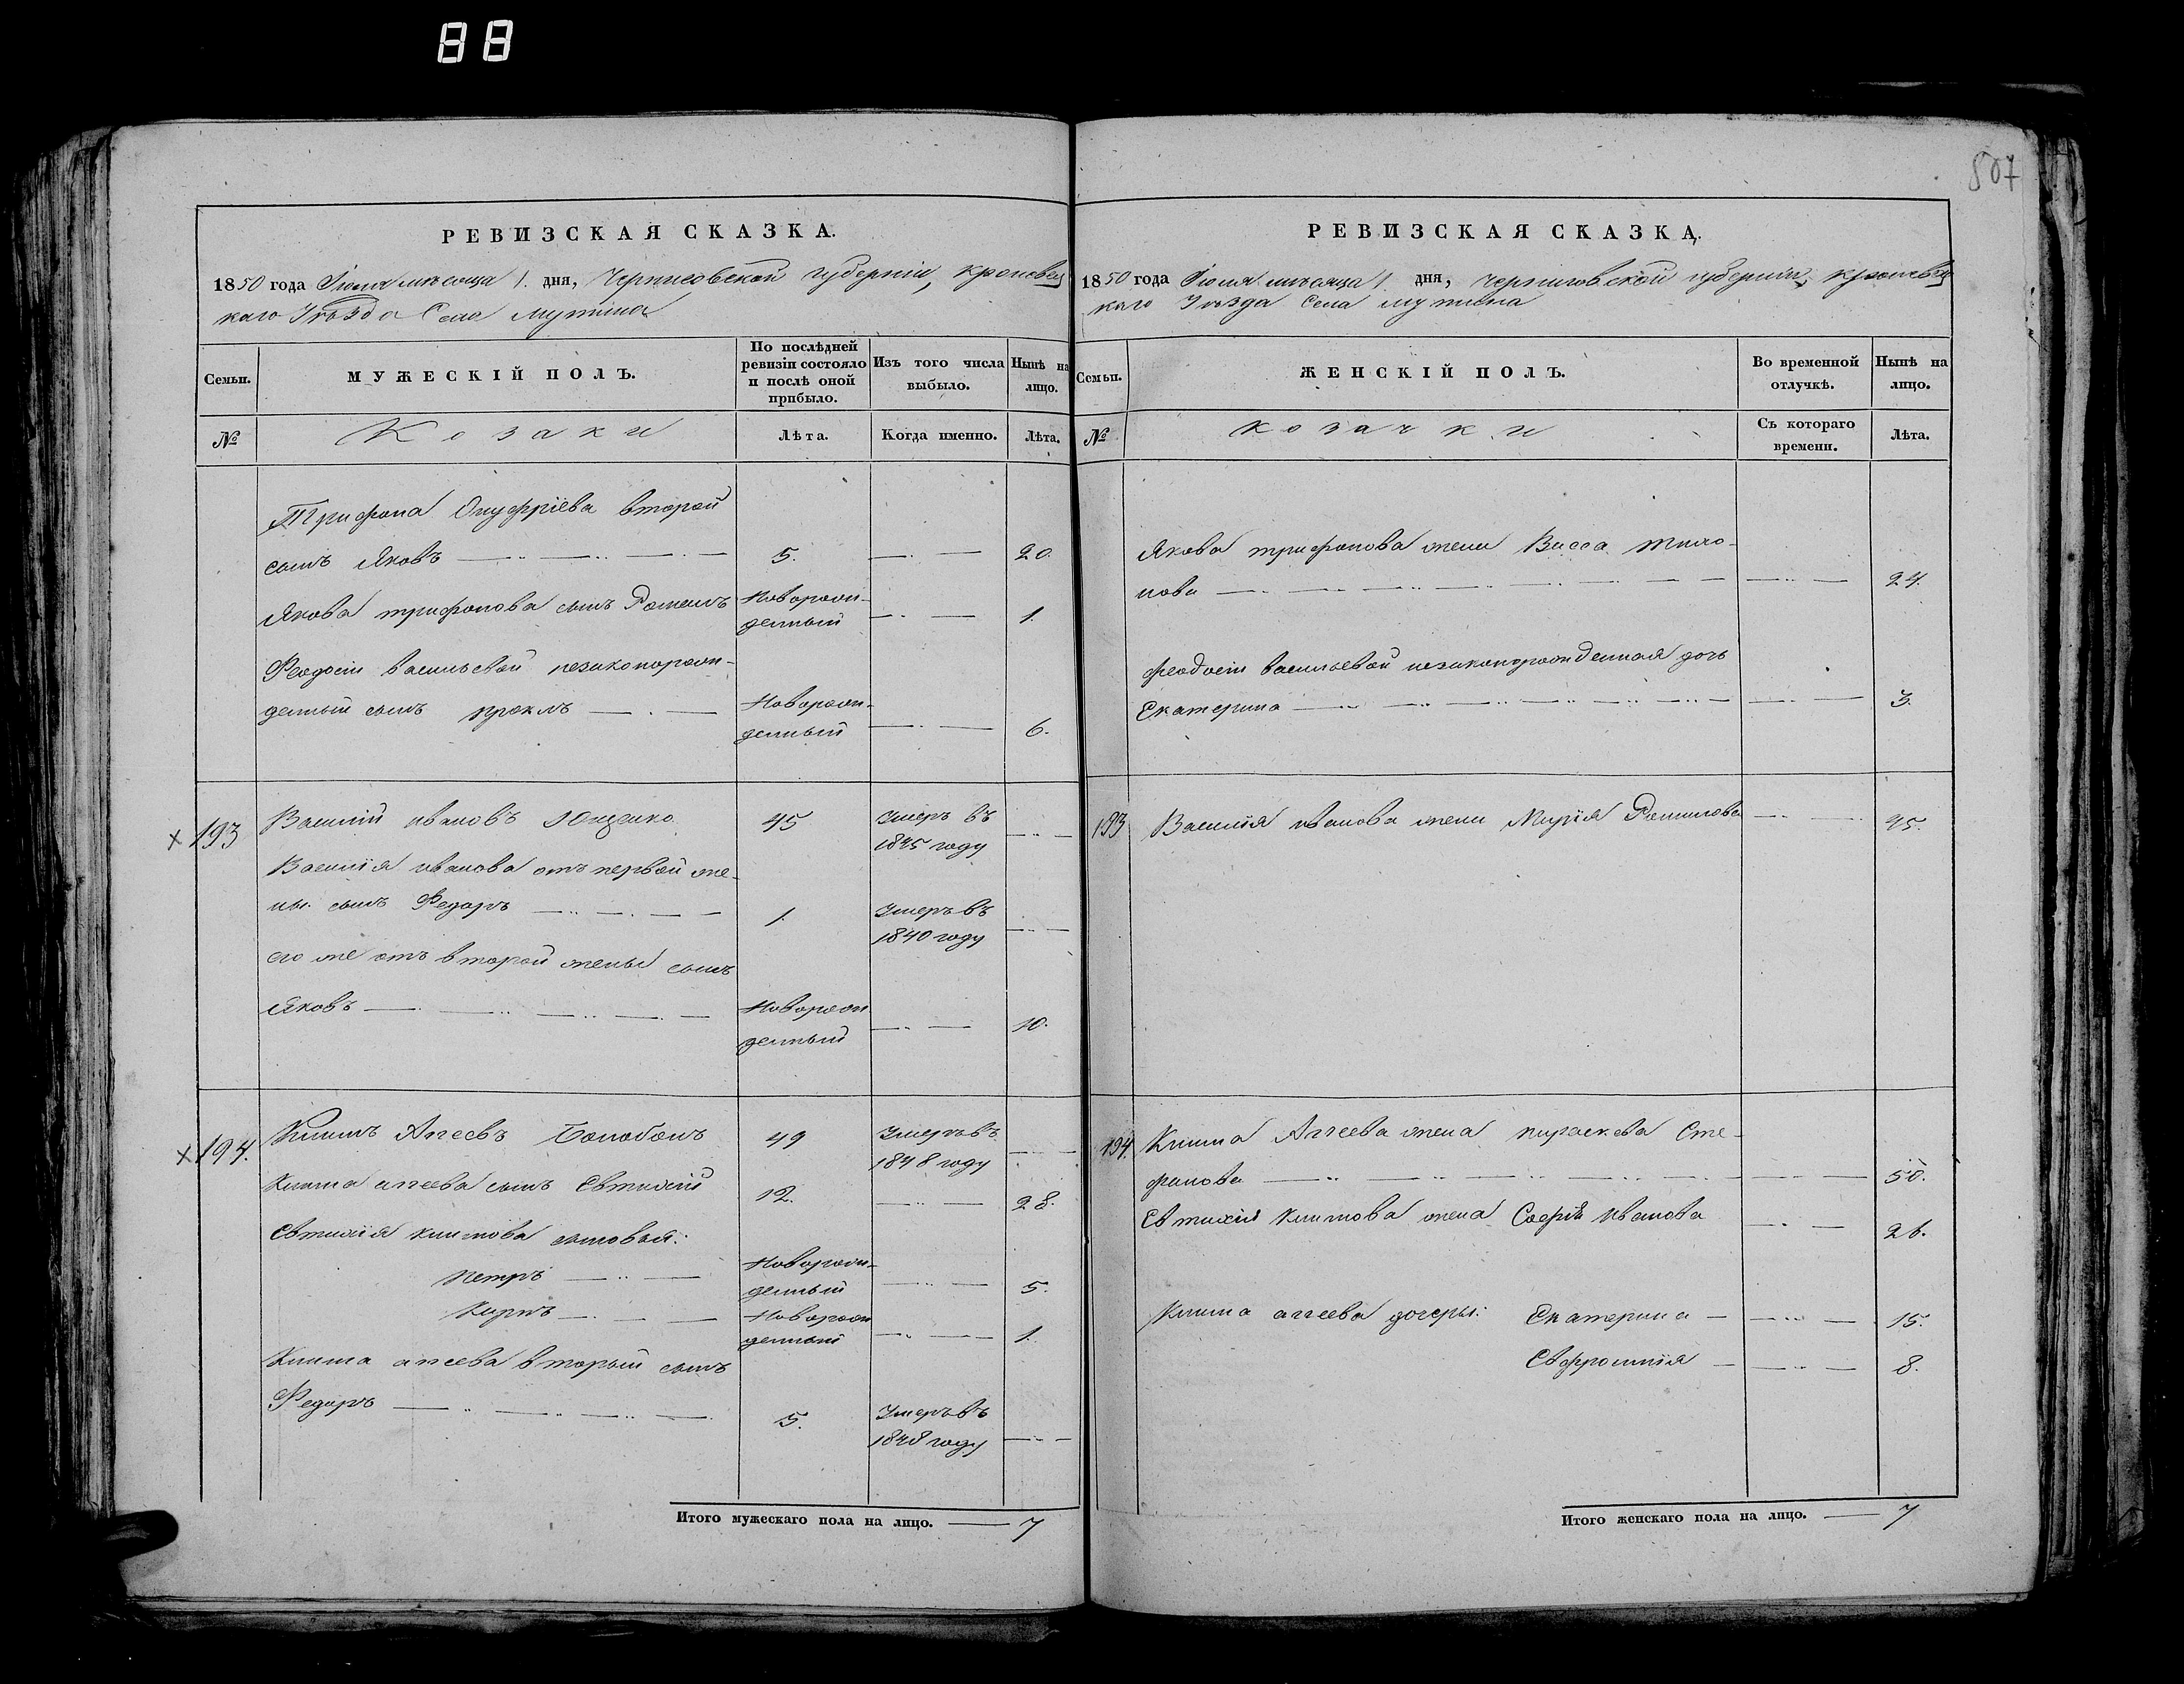 88
807
РЕВИЗСКАЯ СКАЗКА.
1850 года Іюля мѣсяца 1. дня, Черниговской губерніи, Кролевец
каго Уѣзда Села Мутина
Семьи.
МУЖЕСКІЙ ПОЛЪ.
По послѣдней
ревизіи состояло
и послѣ оной
прибыло.
Изъ того числа
выбыло.
Нынѣ на
лицо.
№
Козаки
Лѣта.
Когда именно.
Лѣта.
Трифона Онуфріева второй
сынъ Яковъ 5. 20.
Якова трифонова сынъ Романъ Новорож-
денный 1.
Феодосіи васильевой незаконорож-
денный сынъ Проклъ Новорож-
денный 6.
193 Василий ивановъ Ющенко 45 Умеръ въ
1845 году
Василія иванова отъ первой же-
ны сынъ Федоръ 1. Умеръ въ
1840 году
его же отъ второй жены сынъ
Яковъ Новорож
денный 10.
194. Климъ Агеевъ 49 Умеръ въ
1848 году
Клима агеева сынъ Евтихій 12. 28.
Евтихія климова сыновья:
Петръ Новорож-
денный 5.
Кирпъ Новорож
денный 1.
Клима агеева вторый сынъ
Федоръ 5. Умеръ въ
1848 году
Итого мужескаго пола на лицо. 7
РЕВИЗСКАЯ СКАЗКА.
1850 года Іюля мѣсяца 1. дня, Черниговской губерніи, Кролевец
каго Уѣзда Села Мутина
Семьи.
ЖЕНСКІЙ ПОЛЪ.
Во временной
отлучкѣ.
Нынѣ на
лицо.
№
Козачки
Съ котораго
времени.
Лѣта.
Якова трифонова жена Васса
нова 24.
Феодосіи васильевой незаконорожденная дочь
Екатерина 3.
193 Василія иванова жена Марія Романова 45.
194. Клима Агеева жена параскева Сте-
фанова 50.
Евтихія климова жена Софія иванова 26.
Клима агеева дочеры: Екатерина 15.
Евфросинія 8.
Итого женскаго пола на лицо. 7